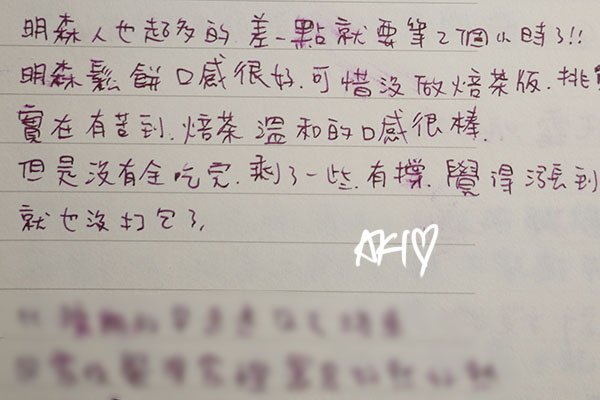 明森人也超多的.差一點就要等2個小時了!!
明森鬆餅口感很好.可惜没做焙茶版.抹
實在有苦到.焙茶溫和的口感很棒.
但是没有全吃完.剩了一些.有撐.覺得漲到
就也没打包了.
AKI♡